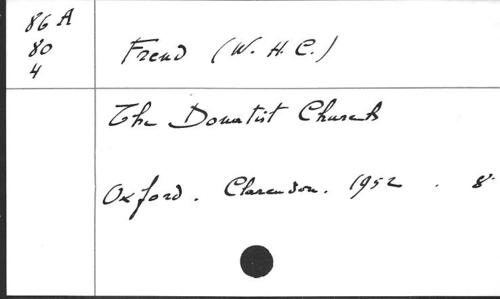 86 A
80
4
Frend (W. H. C.)
The Donatist Church
Oxford. Clarendon. 1952. 8°